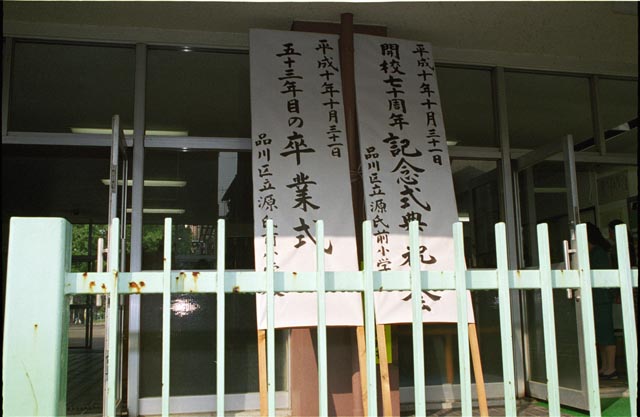 平成十年十月三十一日
開校七十周年記念式典祝会
品川区立源氏前小学
平成十年十月三十一日
五十三年目の卒業式
品川区立源氏前小学